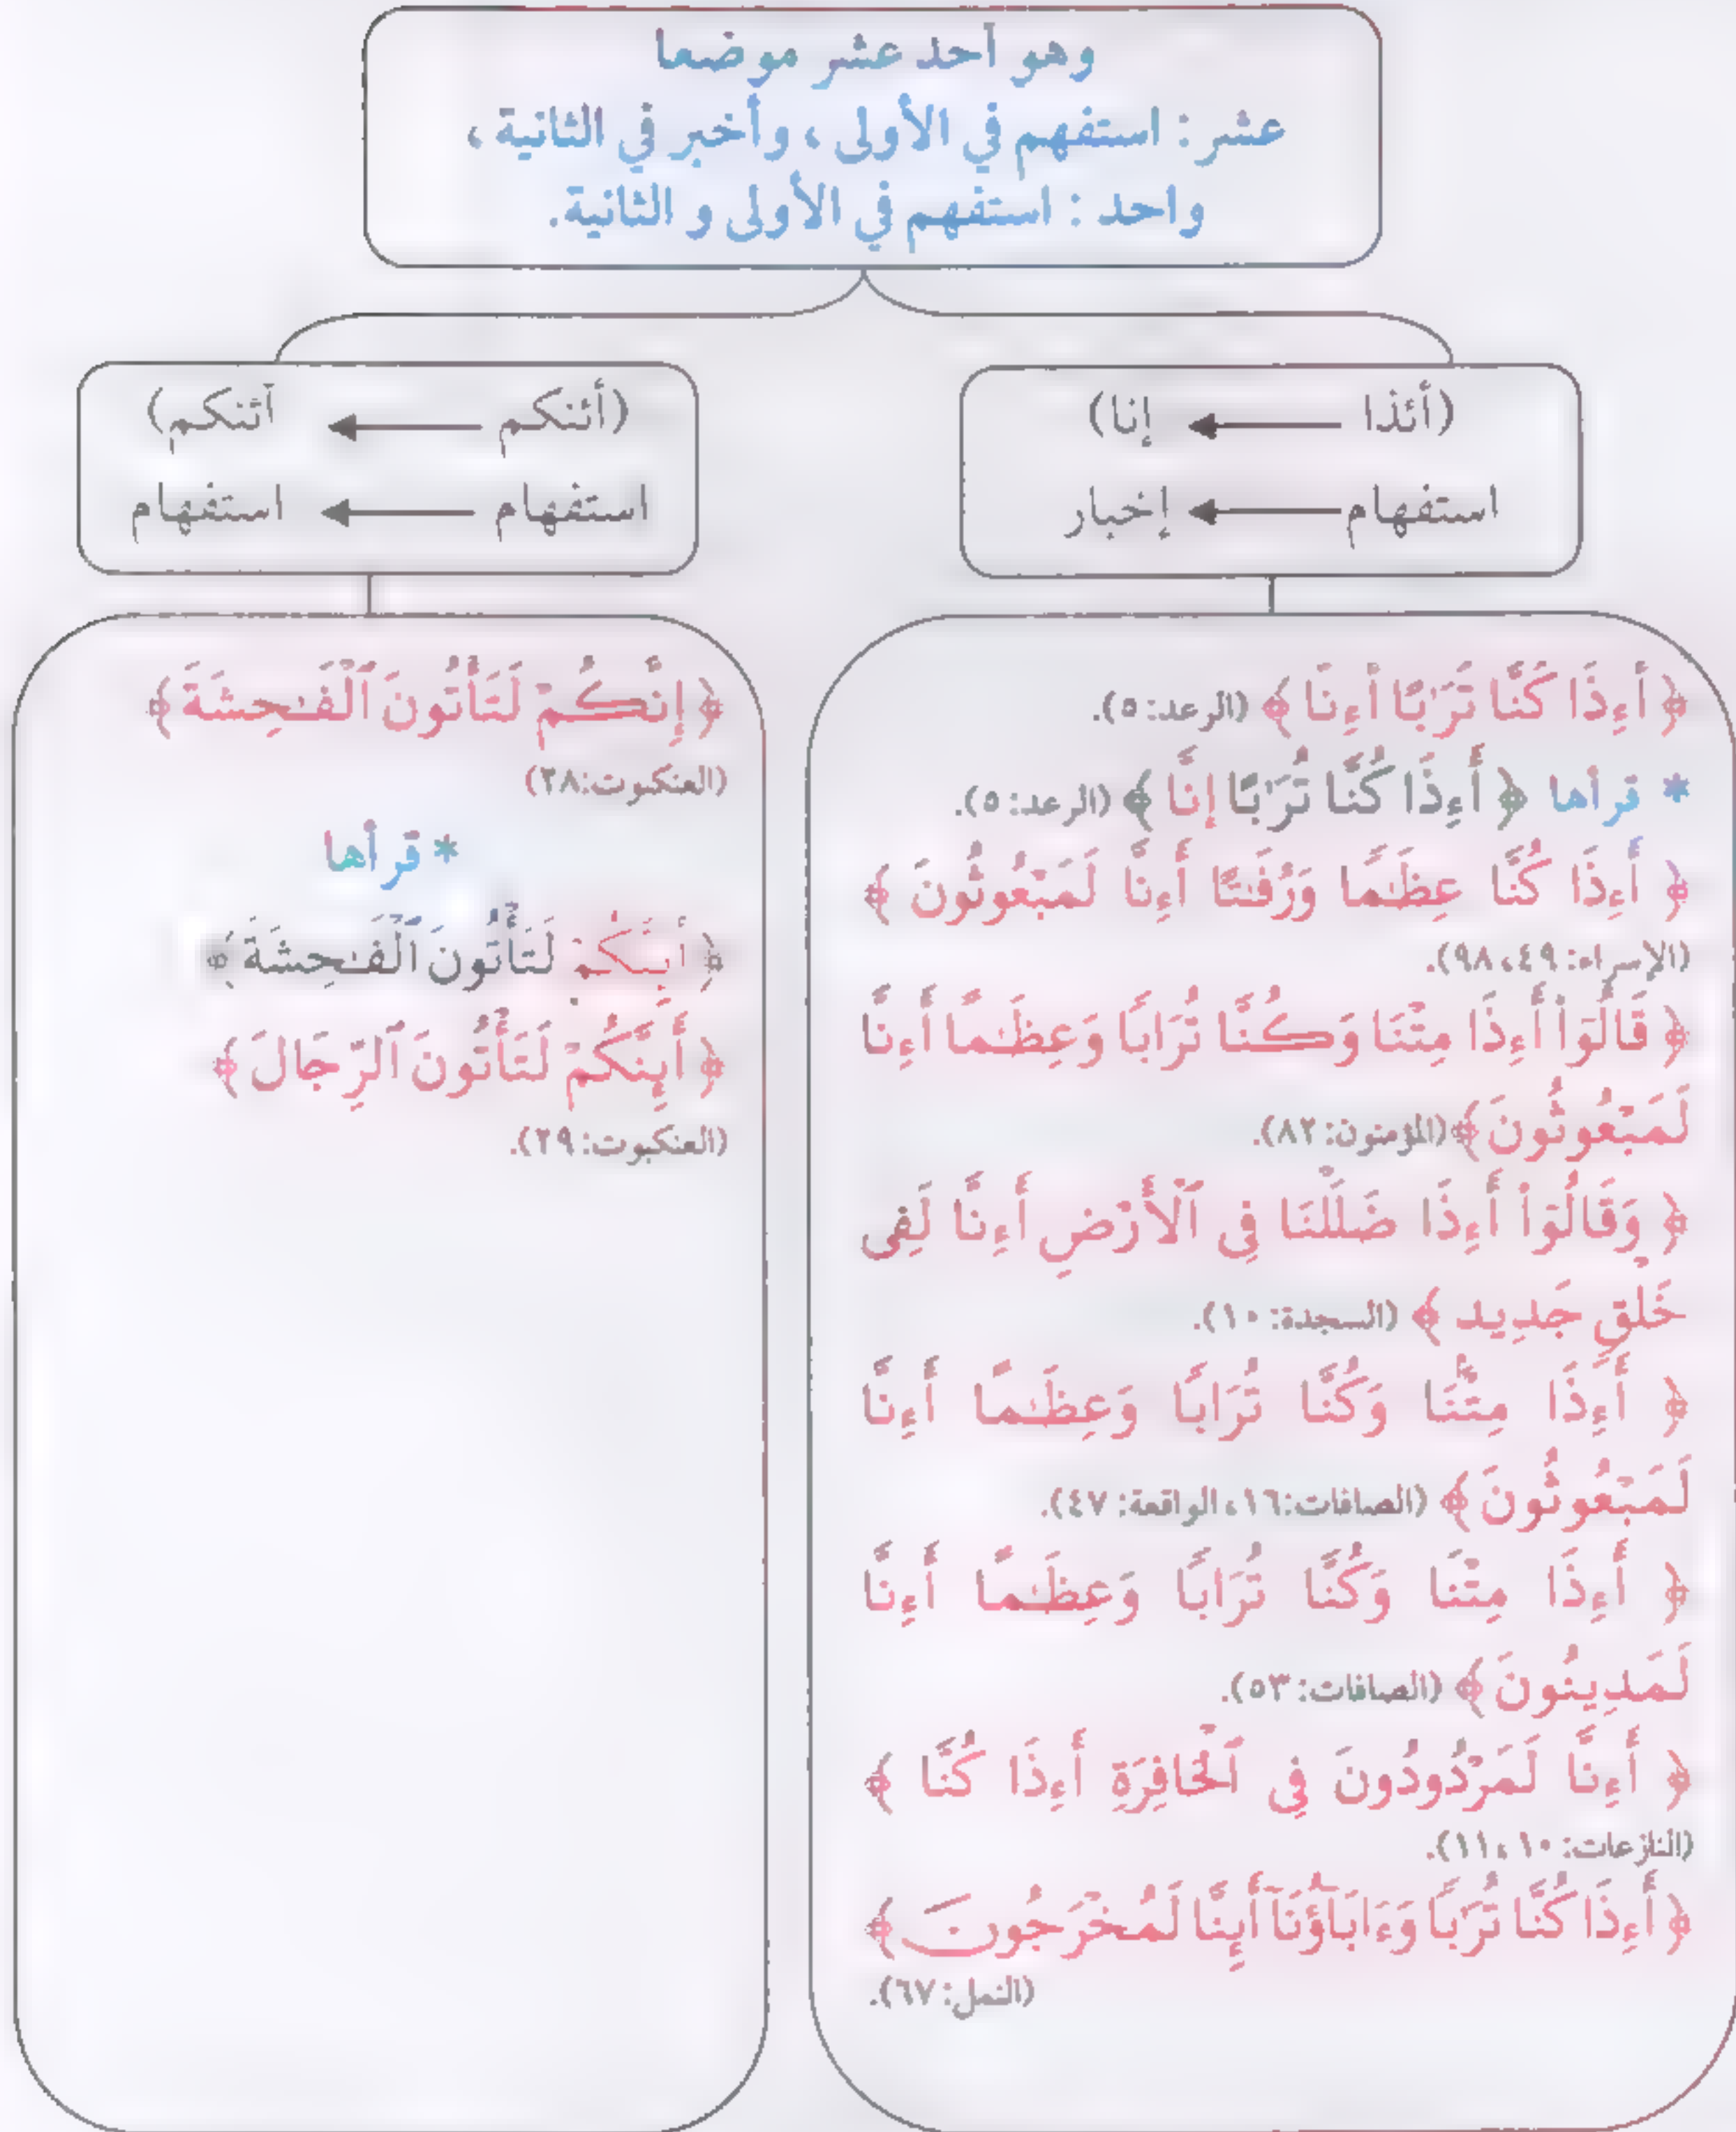 وهو أحد عشر موضعا
عشر : استفهم في الأولى ، وأخبر في الثانية ،
واحد : استفهم في الأولى و الثانية.
(أئذا ← إنا)
استفهام ← إخبار
﴿ أَءِذَا كُنَّا تُرَٰبًا أَءِنَّا ﴾ (الرعد: ٥).
* قرأها ﴿ أَءِذَا كُنَّا تُرَٰبًا إِنَّا ﴾ (الرعد: ٥).
﴿ أَءِذَا كُنَّا عِظَٰمًا وَرُفَٰتًا أَءِنَّا لَمَبْعُوثُونَ ﴾
(الإسراء: ٤٩، ٩٨).
﴿ قَالُوٓا۟ أَءِذَا مِتْنَا وَكُنَّا تُرَابًا وَعِظَٰمًا أَءِنَّا
لَمَبْعُوثُونَ ﴾ (المؤمنون: ٨٢).
﴿ وَقَالُوٓا۟ أَءِذَا ضَلَلْنَا فِى ٱلْأَرْضِ أَءِنَّا لَفِى
خَلْقٍ جَدِيدٍ ﴾ (السجدة: ١٠).
﴿ أَءِذَا مِتْنَا وَكُنَّا تُرَابًا وَعِظَٰمًا أَءِنَّا
لَمَبْعُوثُونَ ﴾ (الصافات: ١٦، الواقعة: ٤٧).
﴿ أَءِذَا مِتْنَا وَكُنَّا تُرَابًا وَعِظَٰمًا أَءِنَّا
لَمَدِينُونَ ﴾ (الصافات: ٥٣).
﴿ أَءِنَّا لَمَرْدُودُونَ فِى ٱلْحَافِرَةِ أَءِذَا كُنَّا ﴾
(النازعات: ١٠، ١١).
﴿ أَءِذَا كُنَّا تُرَٰبًا وَءَابَآؤُنَآ أَئِنَّا لَمُخْرَجُونَ ﴾
(النمل: ٦٧).
(أئنكم ← أئنكم)
استفهام ← استفهام
﴿ إِنَّكُمْ لَتَأْتُونَ ٱلْفَٰحِشَةَ ﴾
(العنكبوت: ٢٨)
* قرأها
﴿ أَئِنَّكُمْ لَتَأْتُونَ ٱلْفَٰحِشَةَ ﴾
﴿ أَئِنَّكُمْ لَتَأْتُونَ ٱلرِّجَالَ ﴾
(العنكبوت: ٢٩).